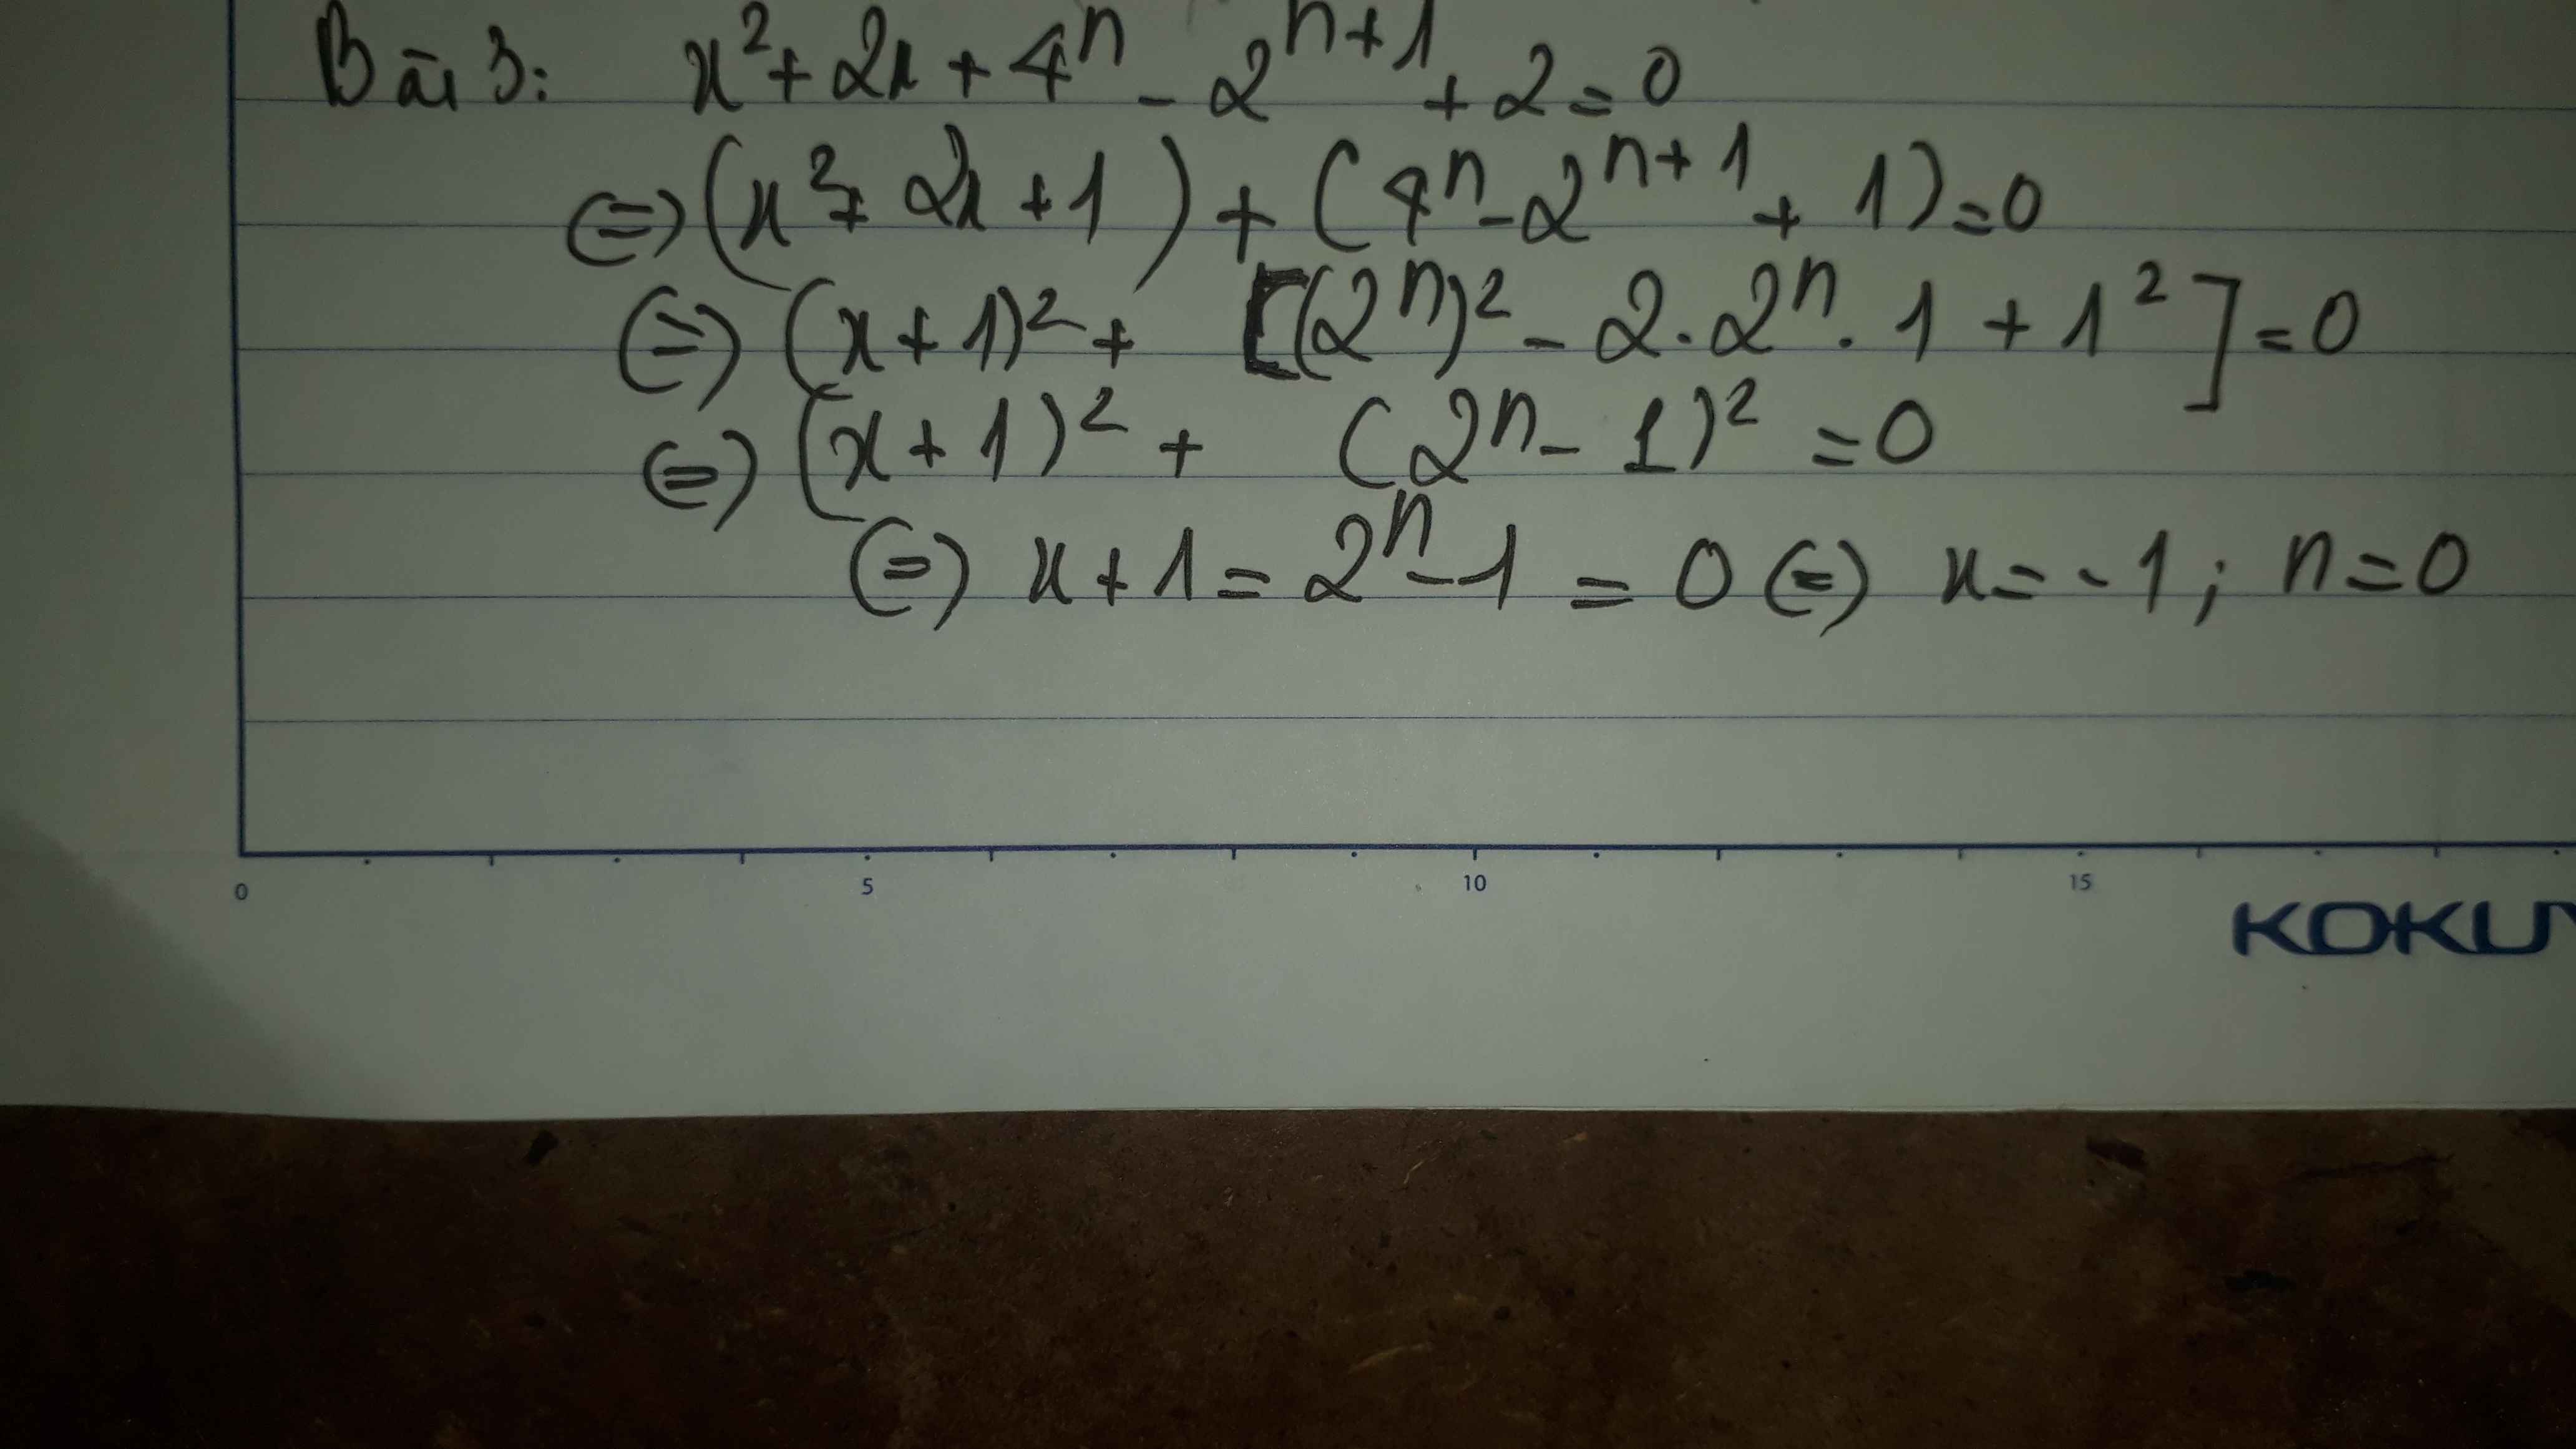 Bài 3: x² + 2x + 4ⁿ - 2ⁿ⁺¹ + 2 = 0
⇔ (x² + 2x + 1) + (4ⁿ - 2ⁿ⁺¹ + 1) = 0
⇔ (x + 1)² + [(2ⁿ)² - 2 . 2ⁿ . 1 + 1²] = 0
⇔ (x + 1)² + (2ⁿ - 1)² = 0
⇔ x + 1 = 2ⁿ - 1 = 0 ⇔ x = -1 ; n = 0
0 5 10 15
KOKU